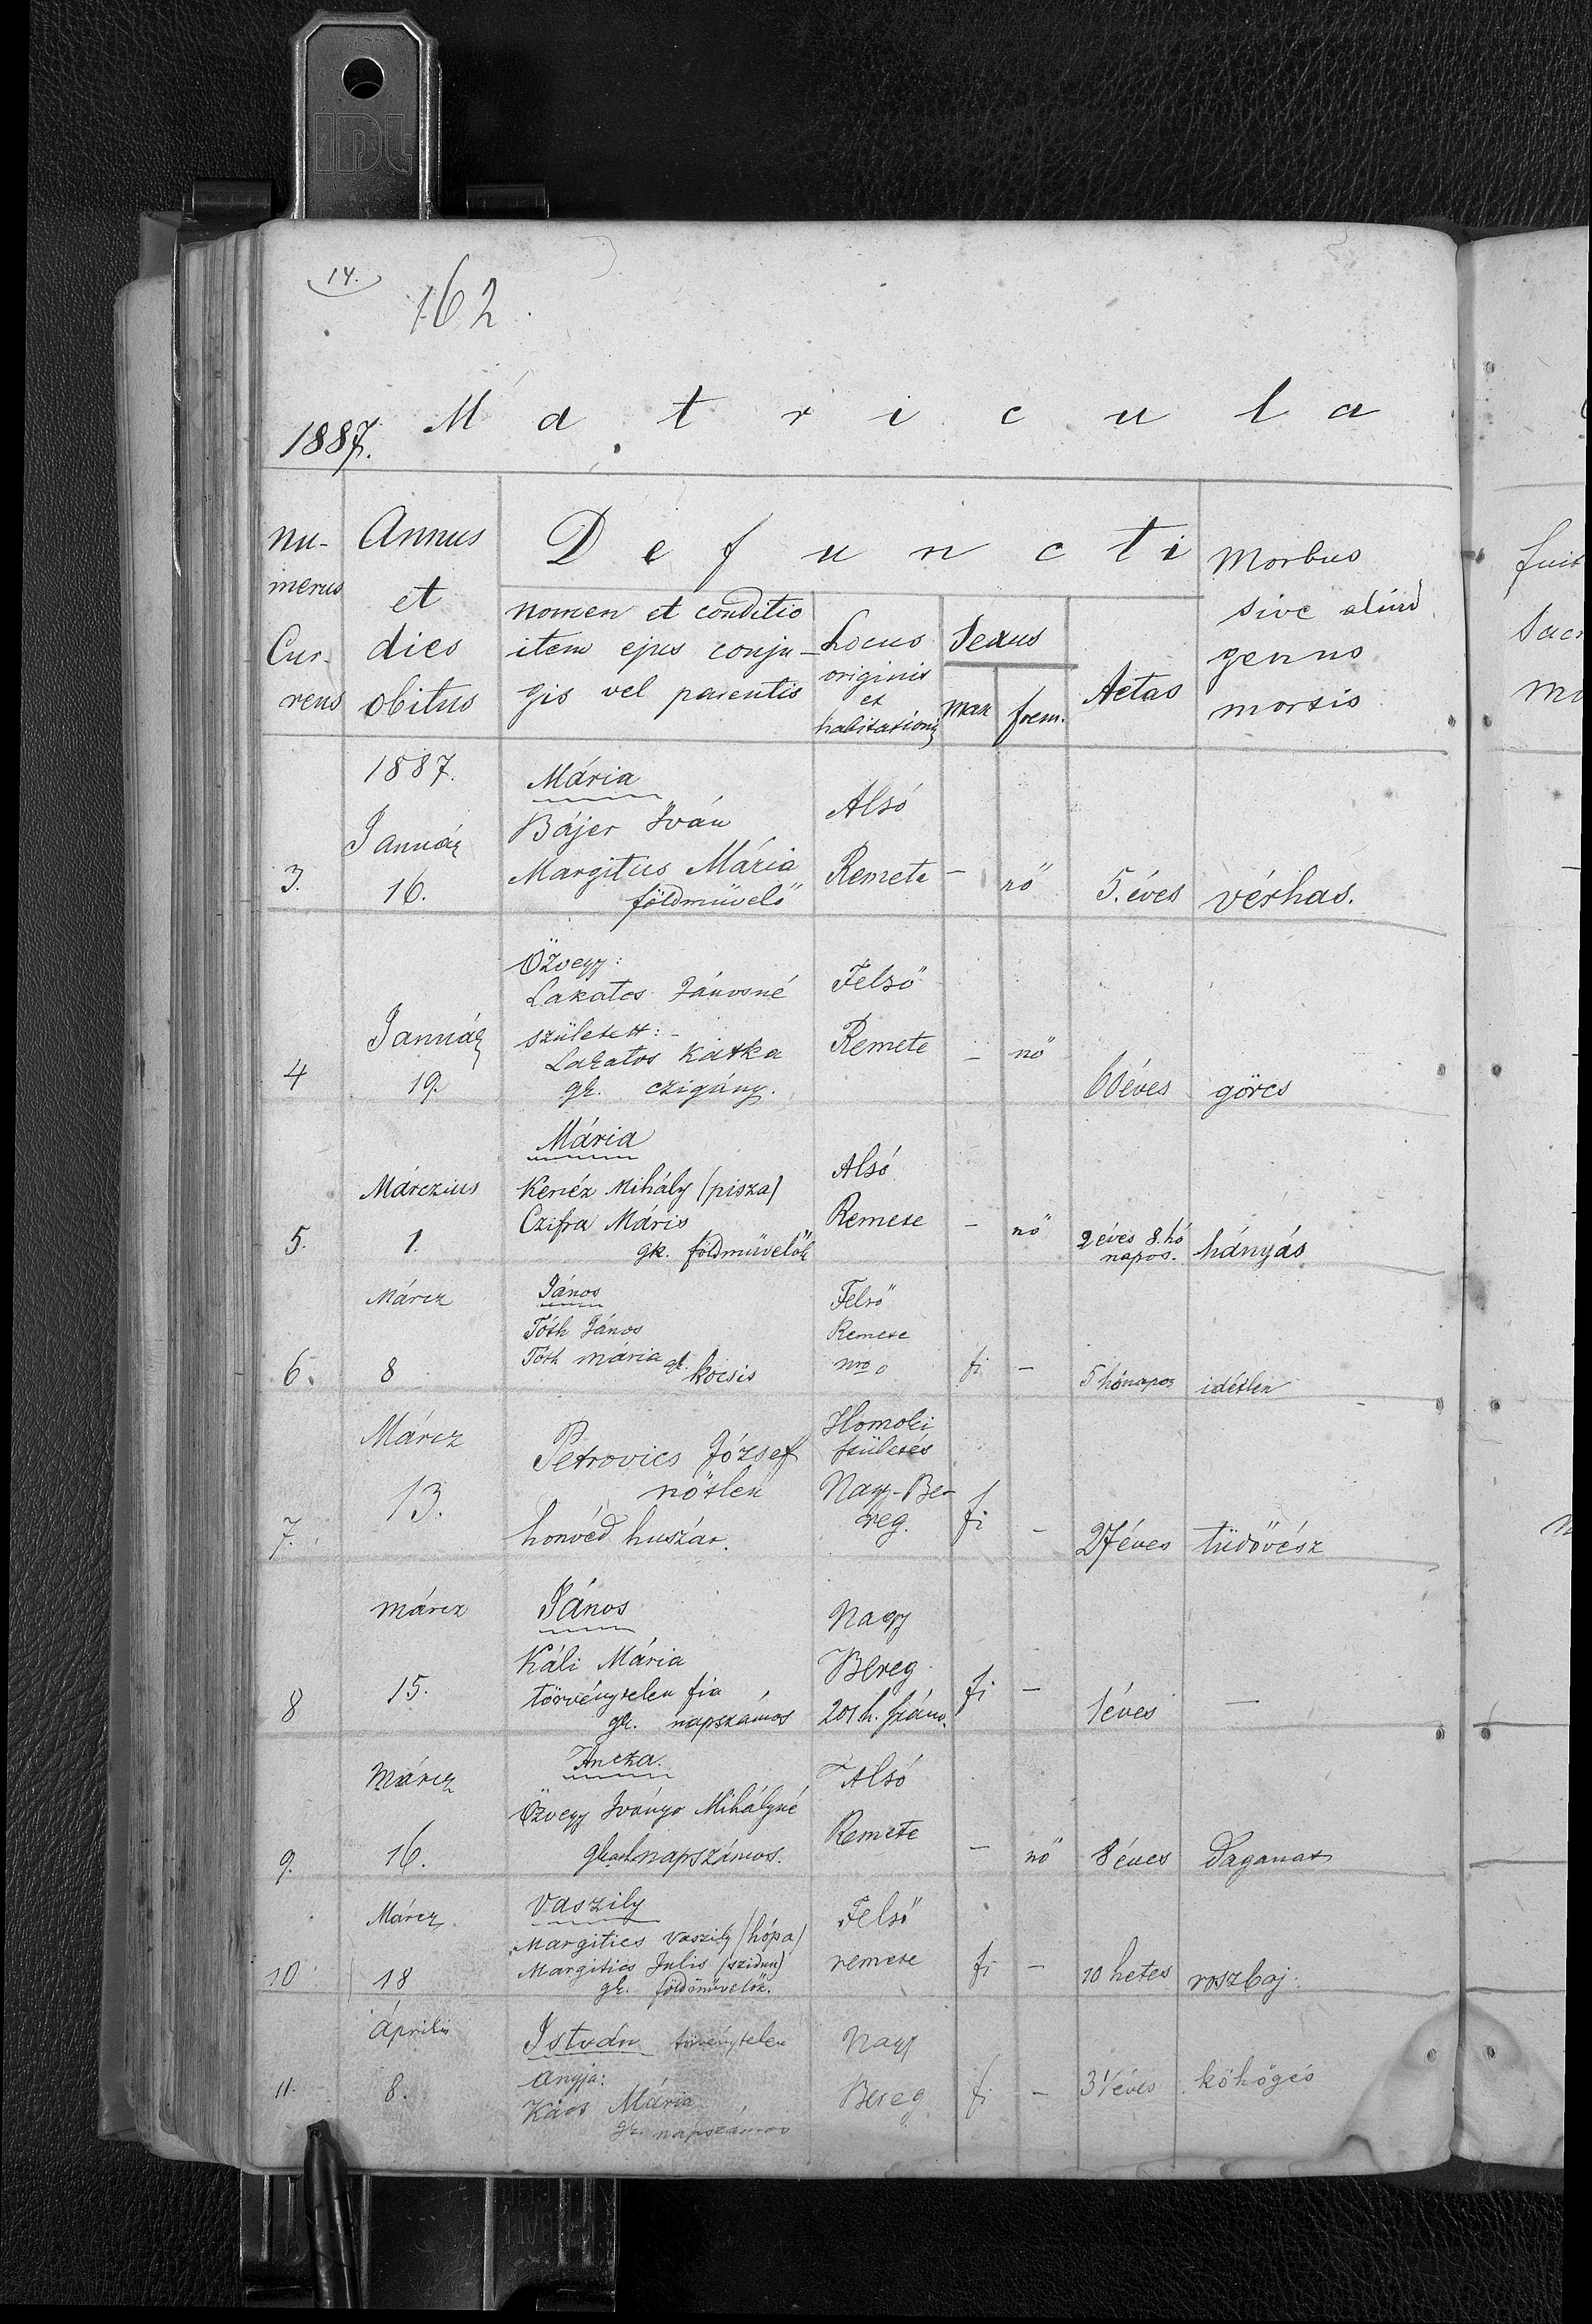 IDL
14.
162.
1887. Matricula
nu-
merus
Cur-
rens
Annus
et
dies
obitus
Defuncti
nomen et conditio
item ejus conju-
gis vel parentis
Locus
originis
et
habitationis
Sexus
mas
foem.
Aetas
Morbus
sive aliud
genus
mortis
1887.
3.
Január
16.
Mária
Bájer Iván
Margitics Mária
földmüvelő
Alsó
Remete
-
nő
5. éves
vérhas.
4
Január
19.
Özvegy:
Lakatos Jánosné
született:-
Lakatos Katka
gk. czigány.
Felső
Remete
-
nő
60 éves
görcs
5.
Márczius
1.
Mária
Kenéz Mihály (pisza)
Czifra Máris
gk. földmüvelők
Alsó
Remete
-
nő
2 éves 8. hó
napos.
hányás
6.
Márcz
8
János
Tóth János
Tóth mária gk. kocsis
Felső
Remete
nro 0
fi
-
5 hónapos
idétlen
7.
Márcz
13.
Petrovics József
nőtlen
honvéd huszár.
Homoki
születés
Nagy-Be-
reg.
fi
-
27 éves
tüdővész
8
márcz
15.
János
Káli Mária
törvénytelen fia
gk. napszámos
Nagy
Bereg
201 h. szám.
fi
-
1 éves
-
9.
Márcz
16.
Ancza.
Özvegy Iványo Mihályné
napszámos.
Alsó
Remete
-
nő
8 éves
Daganat
10
Márcz
18
Vaszily
Margitics Vaszily (hópa)
Margitics Julis
gk. földmüvelők.
Felső
remete
fi
-
10 hetes
roszbaj.
11.
Április
8.
István törvénytelen
Anyja:
Mária
gk. napszámos
Nagy
Bereg
fi
-
éves
köhögés